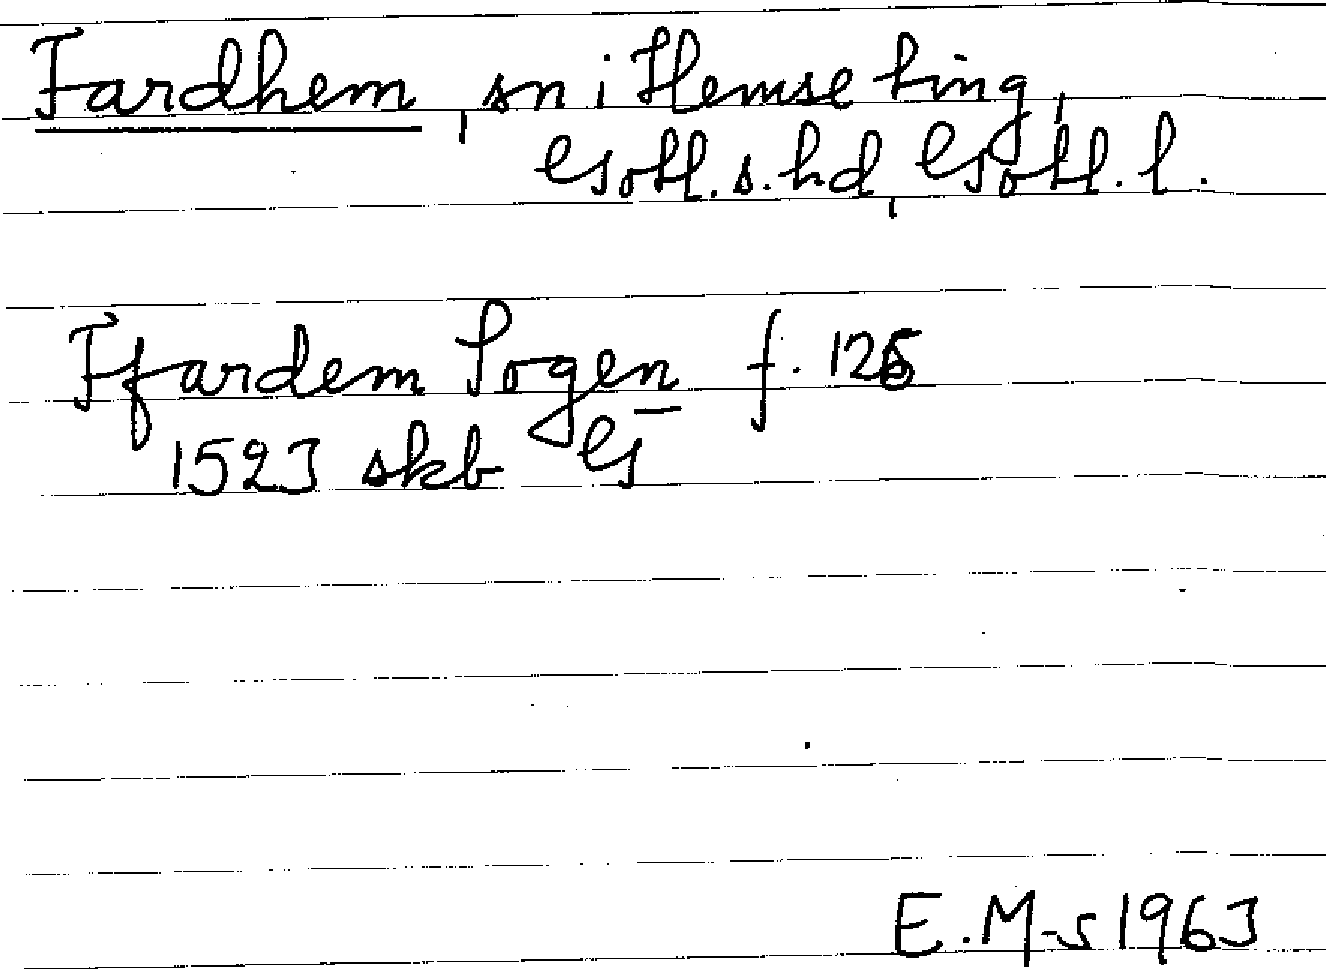 Fardhem, sn i Hemse ting,
Gotl. s. hd, Gotl. l.
Ffardem Sogen f. 126
1523 skb G
E. M-s 1963